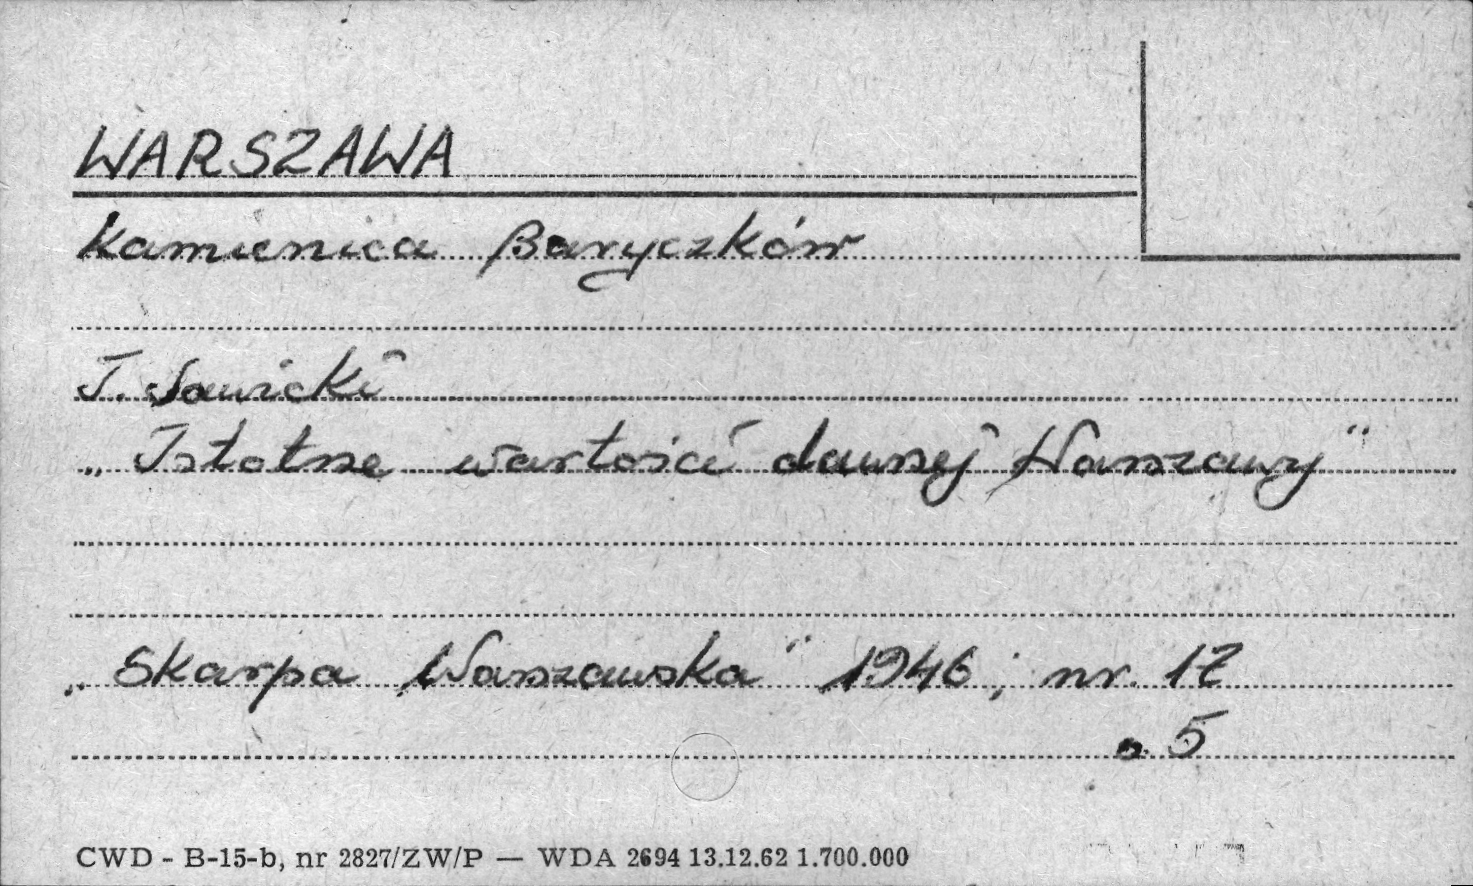 WARSZAWA
Kamienica Baryczków
J. Sawicki
„Istotne wartości dawnej Warszawy"
„Skarpa Warszawska" 1946, nr. 17
s. 5
CWD - B-15-b, nr 2827/ZW/P — WDA 2694 13.12.62 1.700.000